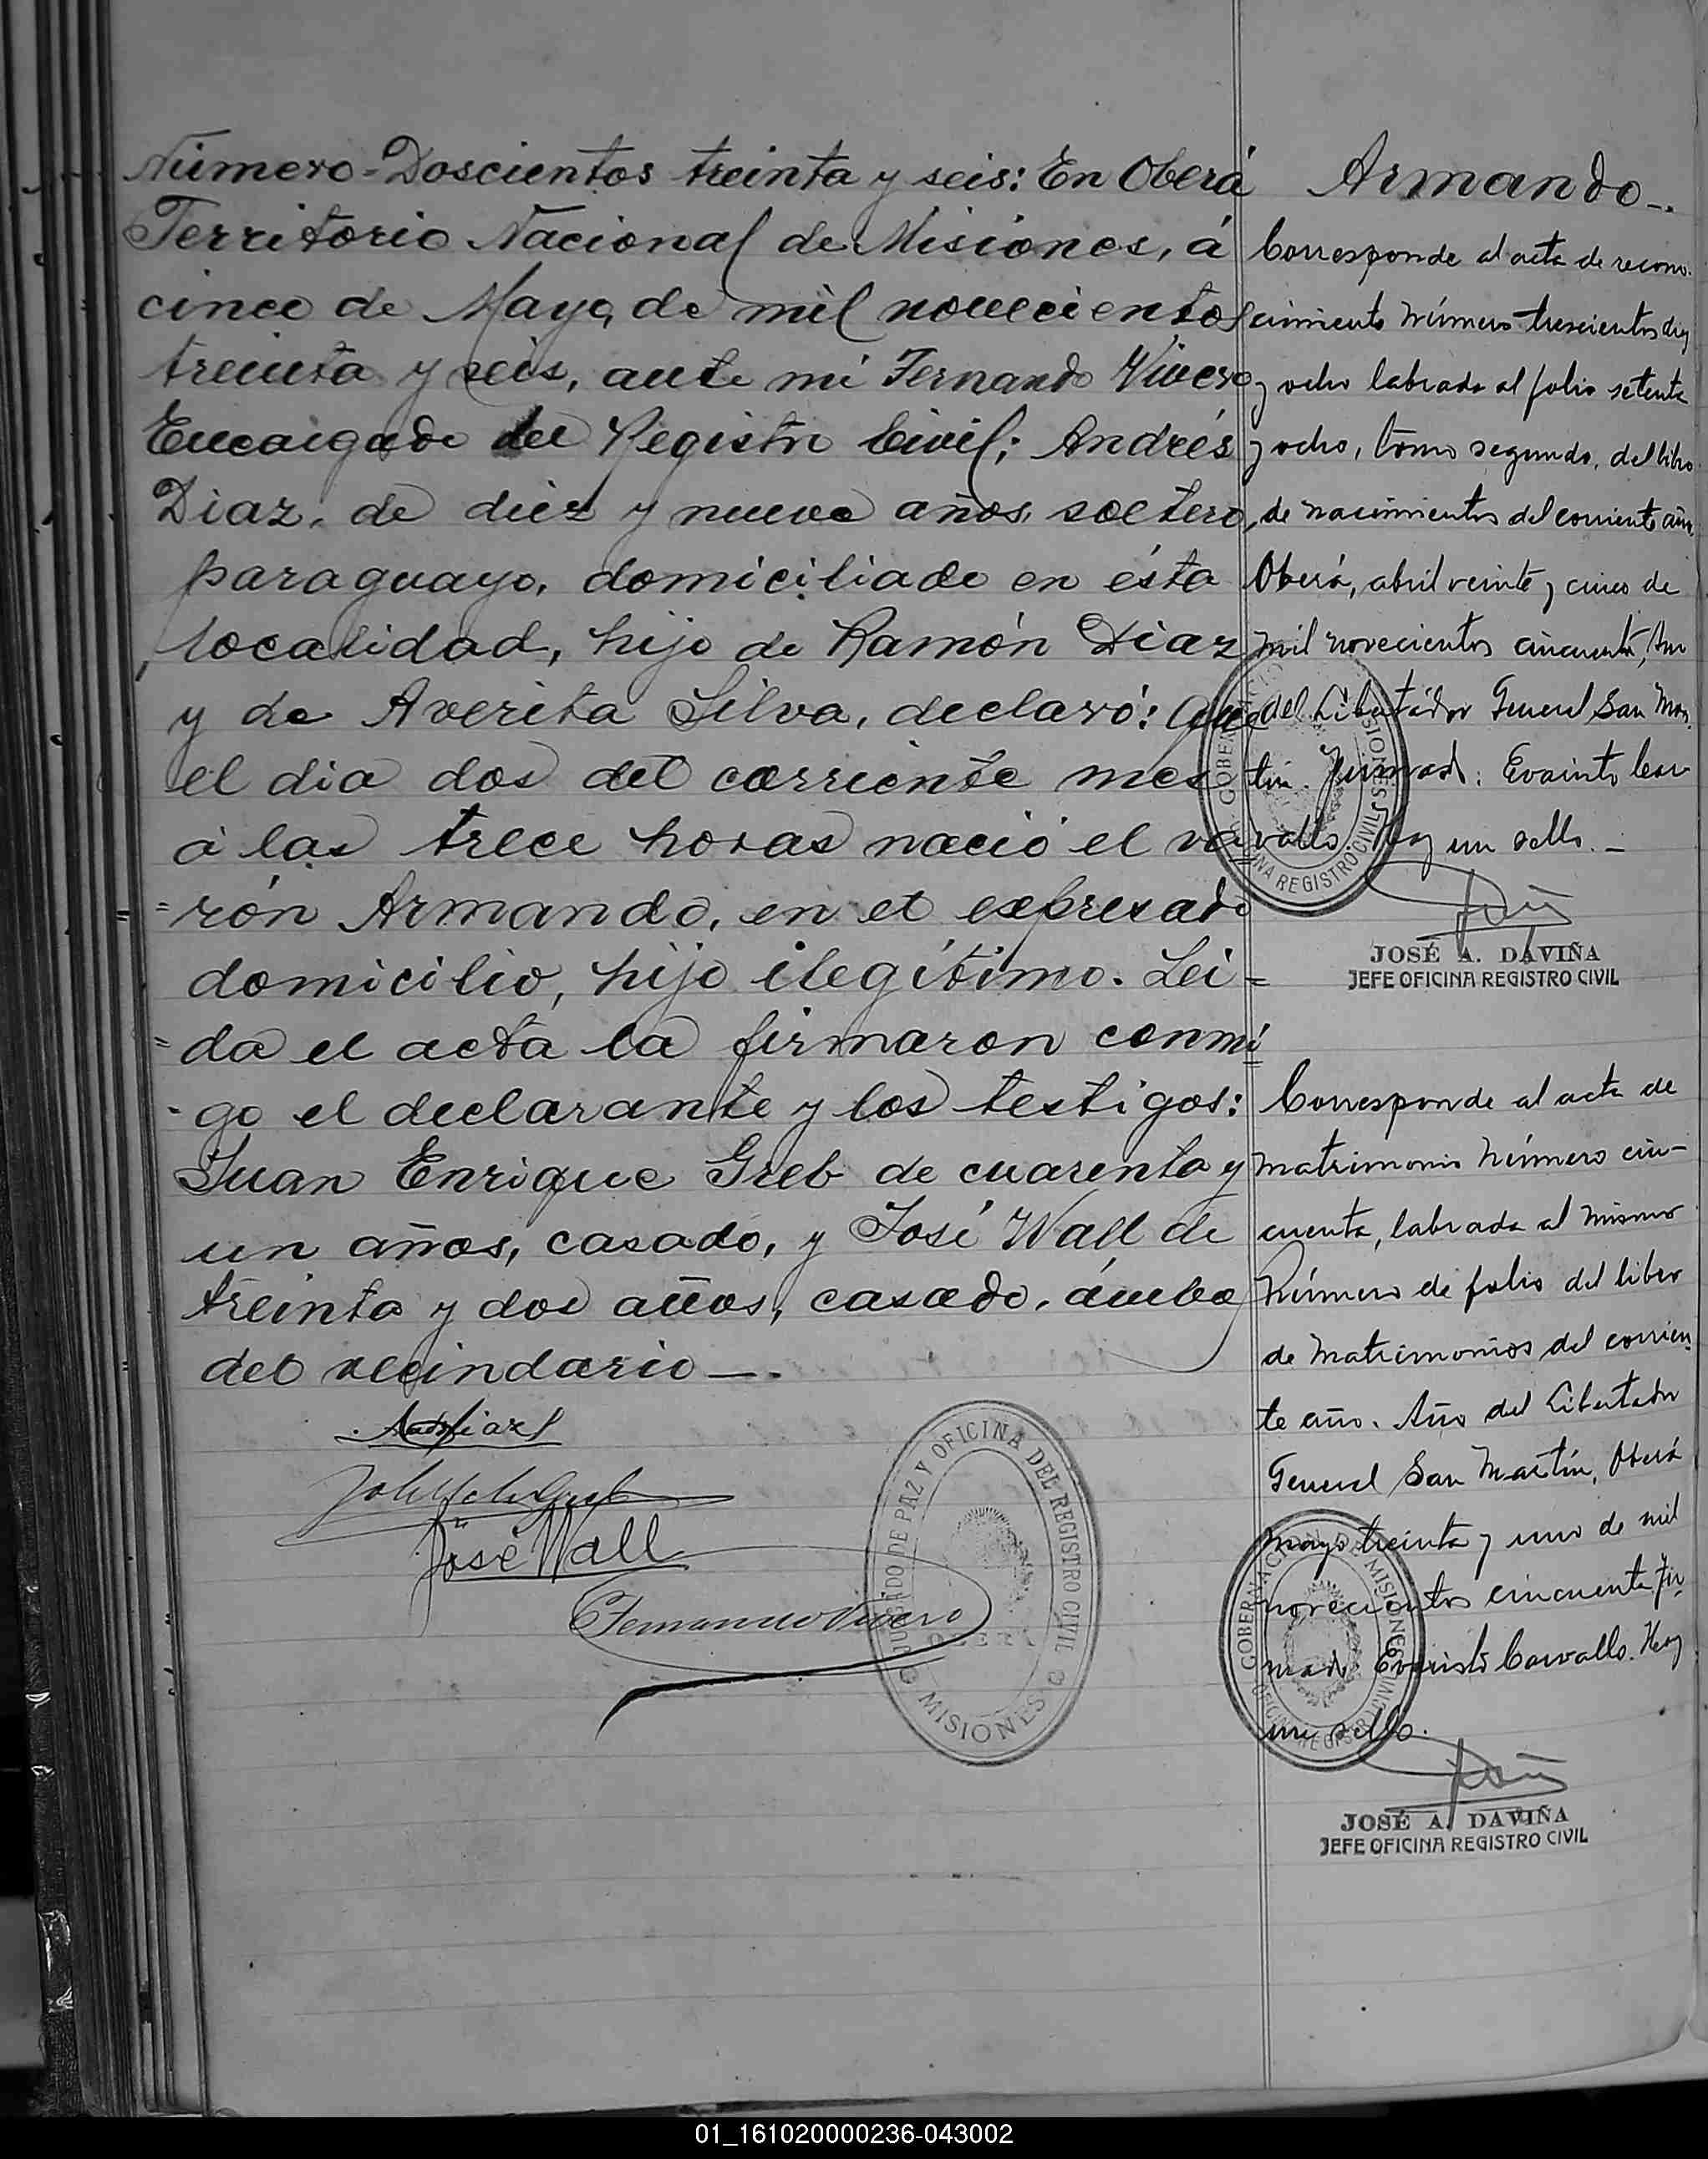 Número-Doscientos treinta y seis: En Oberá
Territorio Nacional de Misiones, á
cinco de Mayo, de mil novecientos
treinta y seis, ante mi Fernando Vivero
Encargado del Registro Civil; Andrés
Diaz, de diez y nueve años, soltero,
paraguayo, domiciliado en ésta
localidad, hijo de Ramón Diaz
y de Averita Silva, declaró: Que
el dia dos del corriente mes
á las trece horas nació el va
=rón Armando, en el expresado
domicilio, hijo ilegítimo. Lei=
=da el acta la firmaron conmi
-go el declarante y los testigos:
Juan Enrique Greb de cuarenta y
un años, casado, y José Wall de
treinta y dos años, casado, ámbos
del vecindario—.
José Wall
Fernando Vivero
JUZGADO DE PAZ Y OFICINA DEL REGISTRO CIVIL
OBERÁ
MISIONES
Armando-.
Corresponde al acta de recono-
cimiento número trescientos diez
y ocho labrada al folio setenta
y ocho, tomo segundo, del libro
de nacimientos del corriente año,
Oberá, abril veinte y cinco de
mil novecientos cincuenta, Año
del Libertador General San Mar-
tín. Firmado: Evaristo Car-
vallo. Hay un sello.-
JOSÉ A. DAVIÑA
JEFE OFICINA REGISTRO CIVIL
Corresponde al acta de
matrimonio número cin-
cuenta, labrada al mismo
número de folio del libro
de matrimonios del corrien-
te año. Año del Libertador
General San Martín, Oberá
mayo treinta y uno de mil
novecientos cincuenta. Fir-
mado Evaristo Carvallo. Hay
un sello.
GOBERNACION DE MISIONES
OFICINA REGISTRO CIVIL
JOSÉ A. DAVIÑA
JEFE OFICINA REGISTRO CIVIL
01_161020000236-043002